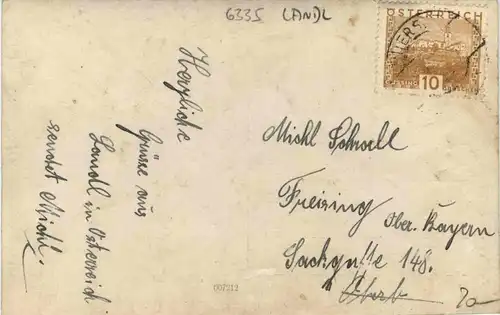 6335 LANDL
ÖSTERREICH
10
Herzliche
Grüsse aus
Landl in Österreich
sendet Michl.
Michl Schroll
Freising Ober. Bayern
Sackgasse 148.
007212
20